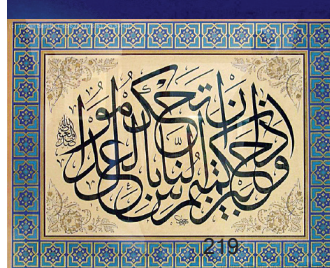 وإذا حكمتم بين الناس أن تحكموا بالعدل
219